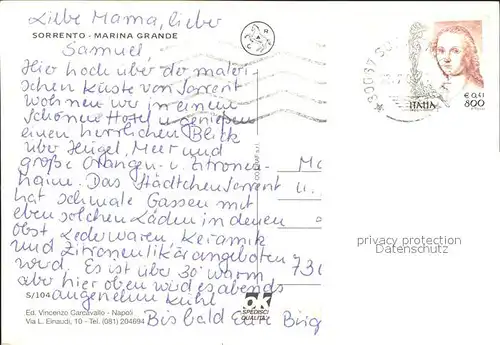 Liebe Mama, lieber
SORRENTO - MARINA GRANDE
Samuel
Hier hoch über der maleri-
schen Küste von Sorrent
wohnen wir in einem
schönen Hotel u. genießen
einen herrlichen Blick
über Hügel, Meer und
große Orangen- u. Zitronen-
haine. Das Städtchen Sorrent
hat schmale Gassen mit
eben solchen Läden in denen
Obst Lederwaren, Keramik
und Zitronenlikör angeboten
wird. Es ist über 30° warm
aber hier oben wird es abends
angenehm kühl
S/104
Bis bald Eure Birg
Ed. Vincenzo Carcavallo - Napoli
Via L. Einaudi, 10 - Tel. (081) 204694
OK SPEDISCI
QUALITA'
80067 SO
ITALIA
€ 0,41
800
u.
privacy protection
Datenschutz